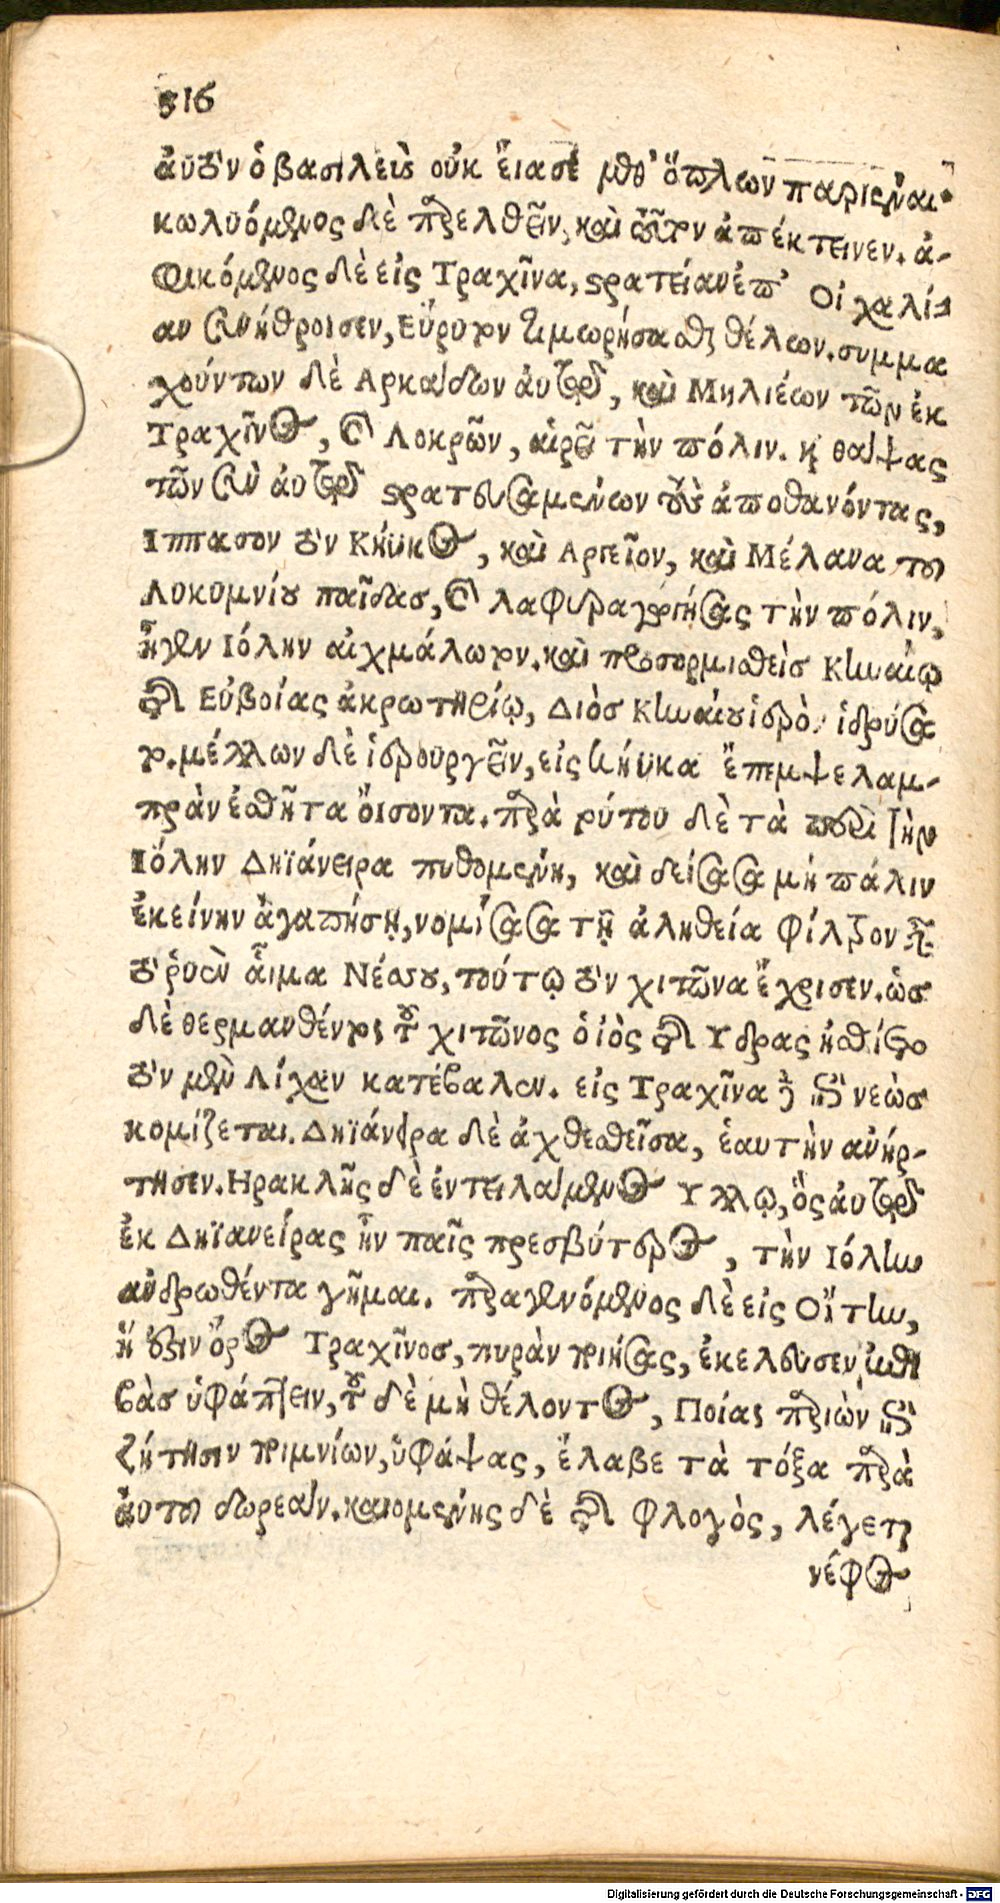 516
ἀυτὸν ὁ βασιλεὺς οὐκ ἔιασε μεθ' ὅπλων παριέναι.
κωλυόμενος δὲ παρελθεῖν, καὶ τοῦτον ἀπέκτεινεν. ἀ-
φικόμενος δὲ εἰς Τραχῖνα, στρατείαν ἐπ' Οἰχαλί-
αν συνήθροισεν, Εὔρυτον τιμωρήσασθαι θέλων. συμμα
χούντων δὲ Αρκάδων ἀυτῷ, καὶ Μηλιέων τῶν ἐκ
Τραχῖνος, καὶ Λοκρῶν, αἱρεῖ τὴν πόλιν. καὶ θάψας
τῶν σὺν ἀυτῷ στρατευσαμένων τοὺς ἀποθανόντας,
Ιππασον τὸν Κήϋκος, καὶ Αργεῖον, καὶ Μέλανα τοὺ
Λυκυμνίου παῖδας, καὶ λαφυραγωγήσας τὴν πόλιν,
ἦγεν Ιόλην αἰχμάλωτον. καὶ προσορμισθεὶς Κηναίῳ
τῆς Εὐβοίας ἀκρωτηρίῳ, Διὸς Κηναίου ἱερὸν ἱδρύσα
το. μέλλων δὲ ἱερουργεῖν, εἰς Κήϋκα ἔπεμψε λαμ-
πρὰν ἐσθῆτα ὄισοντα. παρὰ τούτου δὲ τὰ περὶ τὴν
Ιόλην Δηϊάνειρα πυθομένη, καὶ δείσασα μὴ πάλιν
ἐκείνην ἀγαπήσῃ, νομίσασα τῇ ἀληθεία φίλτρον εἶναι
τὸ ῥυὲν ἆιμα Νέσσου, τούτῳ τὸν χιτῶνα ἔχρισεν. ὡς
δὲ θερμανθέντος τοῦ χιτῶνος ὁ ἰὸς τῆς Υδρας ἠσθίετο
τὸν μὲν Λίχαν κατέβαλεν. εἰς Τραχῖνα δὲ ἐπὶ νεὼς
κομίζεται. Δηϊάνειρα δὲ ἀχθεσθεῖσα, ἑαυτὴν ἀνήρ-
τησεν. Ηρακλῆς δὲ ἐντειλάμενος Υλλῳ, ὃς ἀυτῷ
ἐκ Δηϊανείρας ἦν παῖς πρεσβύτερος, τὴν Ιόλην
ανδρωθέντα γῆμαι. παραγενόμενος δὲ εἰς Οἴτην,
ἥ ἐστιν ὄρος Τραχῖνος, πυρὰν ποιήσας, ἐκέλευσεν ἐπι
βὰς ὑφάπτειν, τοῦ δὲ μὴ θέλοντος, Ποίας παριὼν ἐπὶ
ζήτησιν ποιμνίων, ὑφάψας, ἔλαβε τὰ τόξα παρὰ
ἀυτοῦ δωρεάν. καιομένης δὲ τῆς φλογὸς, λέγεται
νέφος
Digitalisierung gefördert durch die Deutsche Forschungsgemeinschaft - DFG